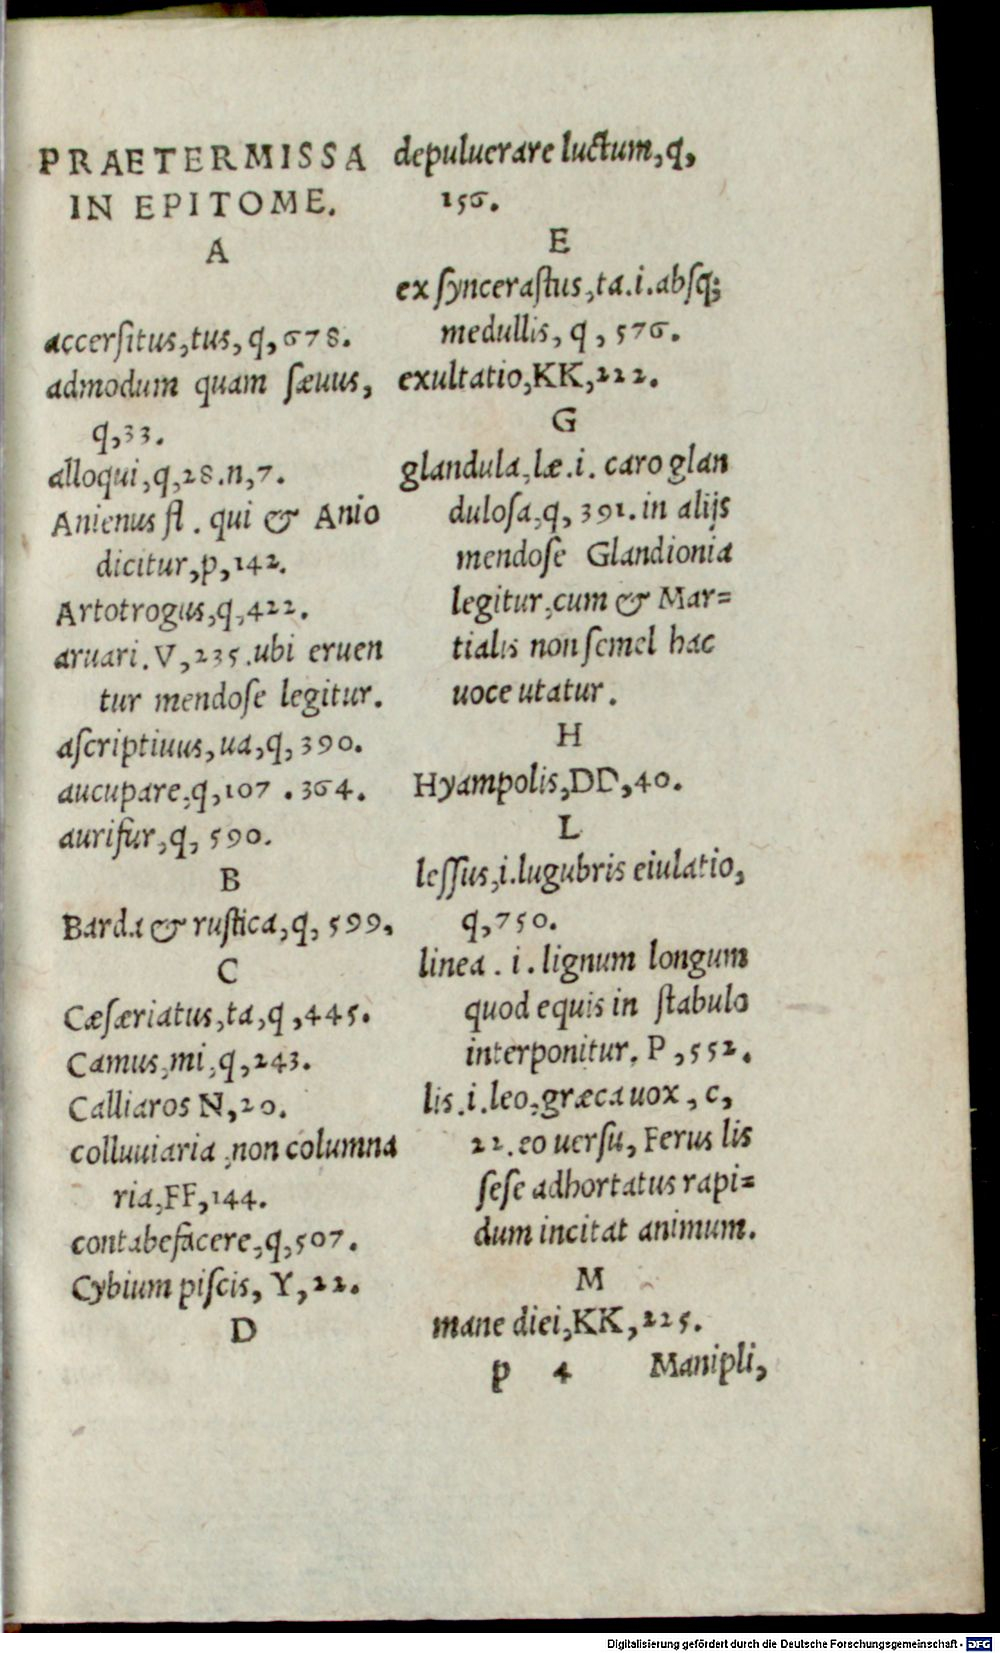 PRAETERMISSA
IN EPITOME.
A
accerſitus,tus, q, 678.
admodum quam ſæuus,
q,33.
alloqui,q,28.n,7.
Anienus fl. qui & Anio
dicitur,p,142.
Artotrogus,q,422.
aruari.V,235.ubi eruen
tur mendoſe legitur.
aſcriptiuus,ua,q,390.
aucupare,q,107.364.
aurifur,q, 590.
B
Barda & ruſtica,q, 599,
C
Cæſæriatus,ta,q,445.
Camus,mi,q,243.
Calliaros N,20.
colluuiaria,non columna
ria,FF,144.
contabefacere,q,507.
Cybium piſcis, Y,22.
D
depuluerare luctum,q,
156.
E
ex ſynceraſtus,ta.i.abſq;
medullis, q, 576.
exultatio,KK,222.
G
glandula,læ.i. caro glan
duloſa,q, 391.in alijs
mendoſe Glandionia
legitur,cum & Mar=
tialis non ſemel hac
uoce utatur.
H
Hyampolis,DD,40.
L
leſſus,i.lugubris eiulatio,
q,750.
linea.i.lignum longum
quod equis in ſtabulo
interponitur. P,552.
lis.i.leo,græca uox, c,
22.eo uerſu, Ferus lis
ſeſe adhortatus rapi=
dum incitat animum.
M
mane diei,KK,225.
p 4 Manipli,
Digitalisierung gefördert durch die Deutsche Forschungsgemeinschaft - DFG